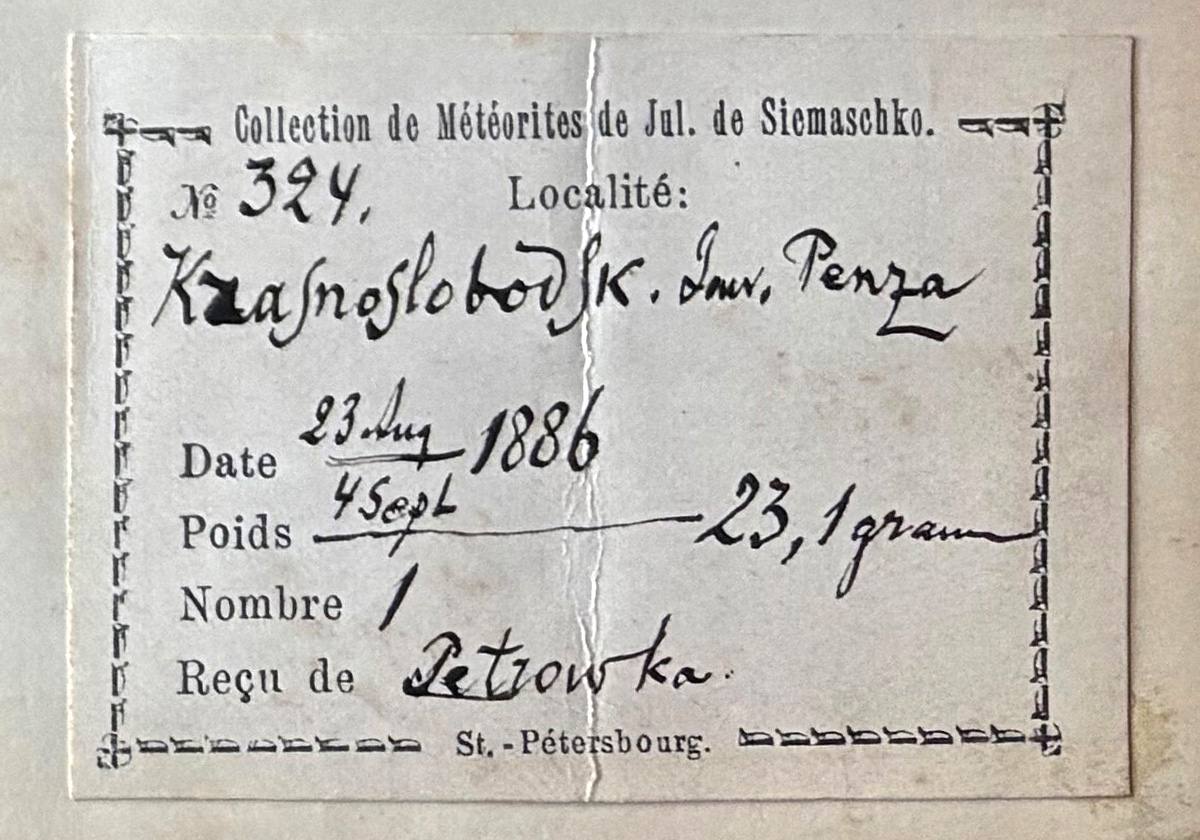 Collection de Météorites de Jul. de Siemaschko.
№ 324. Localité:
Krasnoslobodsk. Penza
Date 23 Aug 1886
4 Sept
Poids 23,1 gram
Nombre 1
Reçu de Petrowka.
St.-Pétersbourg.